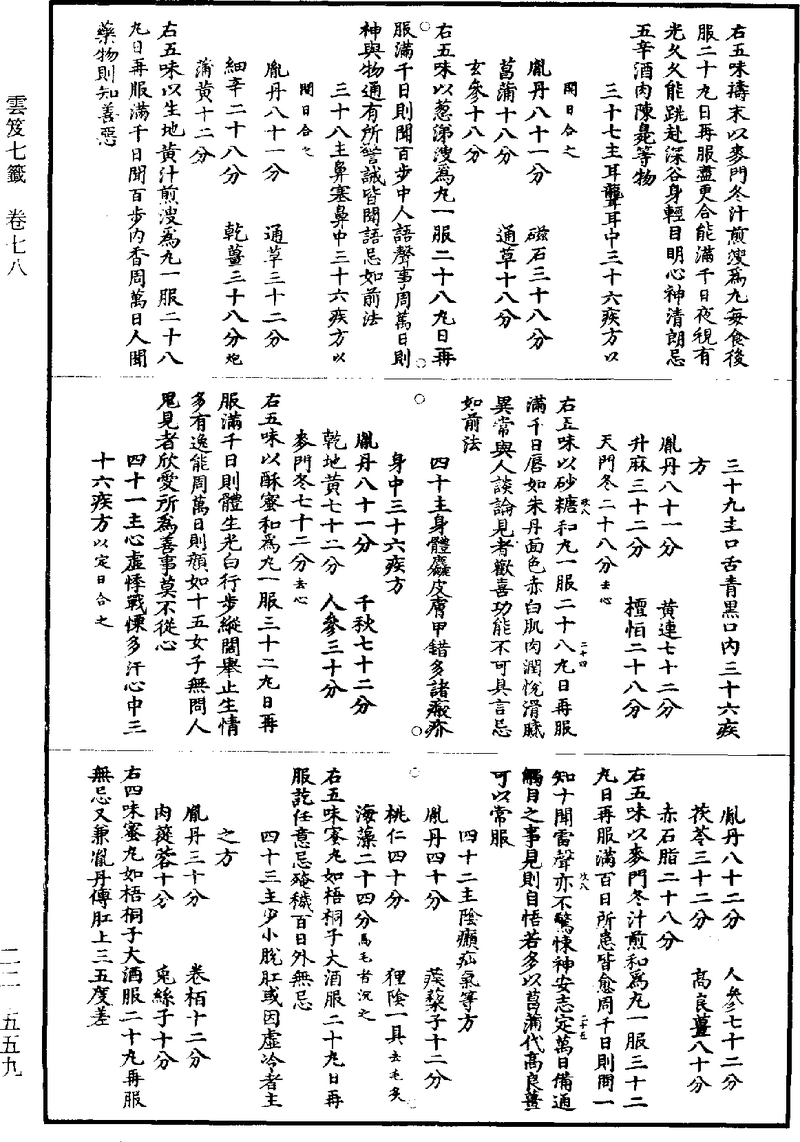 雲笈七籤 卷七八
右五味擣末以麥門冬汁煎溲爲丸每食後
服二十九日再服盡更合能滿千日夜視有
光久久能跳赴深谷身輕目明心神清朗忌
五辛酒肉陳臭等物
三十七主耳聾耳中三十六疾方以
閇日合之
胤丹八十一分 磁石三十八分
菖蒲十八分 通草十八分
玄參十八分
右五味以葱涕溲爲丸一服二十八丸日再
服滿千日則聞百步中人語聲事周萬日則
神與物通有所警誡皆聞語忌如前法
三十八主鼻塞鼻中三十六疾方以
閇日合之
胤丹八十一分 通草三十二分
細辛二十八分 乾薑三十八分炮
蒲黃十二分
右五味以生地黃汁煎溲爲丸一服二十八
丸日再服滿千日聞百步內香周萬日人聞
藥物則知善惡
三十九主口舌青黑口內三十六疾
方
胤丹八十一分 黃連七十二分
升麻三十二分 檀恒二十八分
天門冬二十八分去心
右五味以砂糖和丸一服二十八丸日再服
滿千日唇如朱丹面色赤白肌肉潤悅滑膩
異常與人談論見者歡喜功能不可具言忌
如前法
四十主身體麤皮膚甲錯多諸瘢疥
身中三十六疾方
胤丹八十一分 千秋七十二分
乾地黃七十二分 人參三十分
麥門冬七十二分去心
右五味以酥蜜和爲丸一服三十二丸日再
服滿千日則體生光白行步縱闊舉止生情
多有逸能周萬日則顏如十五女子無問人
鬼見者欣愛所爲善事莫不從心
四十一主心虛悸戰慄多汗心中三
十六疾方以定日合之
胤丹八十二分 人參七十二分
茯苓三十二分 高良薑八十分
赤石脂二十八分
右五味以麥門冬汁煎和爲丸一服三十二
丸日再服滿百日所患皆愈周千日則問一
知十聞雷聲亦不驚悚神安志定萬日備通
觸目之事見則自悟若多以菖蒲代高良薑
可以常服
四十二主陰癩疝氣等方
胤丹四十分 蒺蔾子十二分
桃仁四十分 狸陰一具去毛炙
海藻二十四分馬毛者洗之
右五味蜜丸如梧桐子大酒服二十九日再
服訖任意忌殗穢百日外無忌
四十三主少小脫肛或因虛冷者主
之方
胤丹三十分 卷栢十二分
肉蓯蓉十分 兎絲子十分
右四味蜜丸如梧桐子大酒服二十丸再服
無忌又兼胤丹傅肛上三五度差
二二 五五九